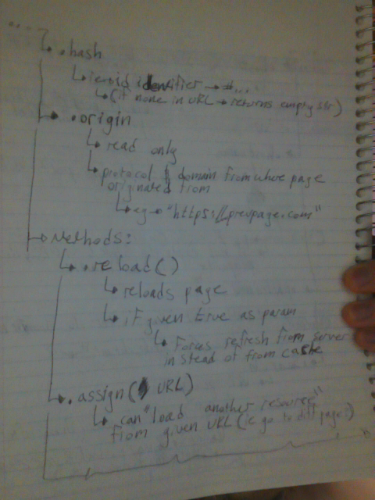 ↳ .hash
↳ identifier → #...
↳ (if none in URL → returns empty str)
↳ .origin
↳ read only
↳ protocol & domain from where page
originated from
↳ eg → "https://prevpage.com"
↳ Methods:
↳ .reload()
↳ reloads page
↳ if given true as param
↳ Forces refresh from server
instead of from cache
↳ .assign( URL)
↳ can "load another resource"
from given URL (ie go to diff page?)